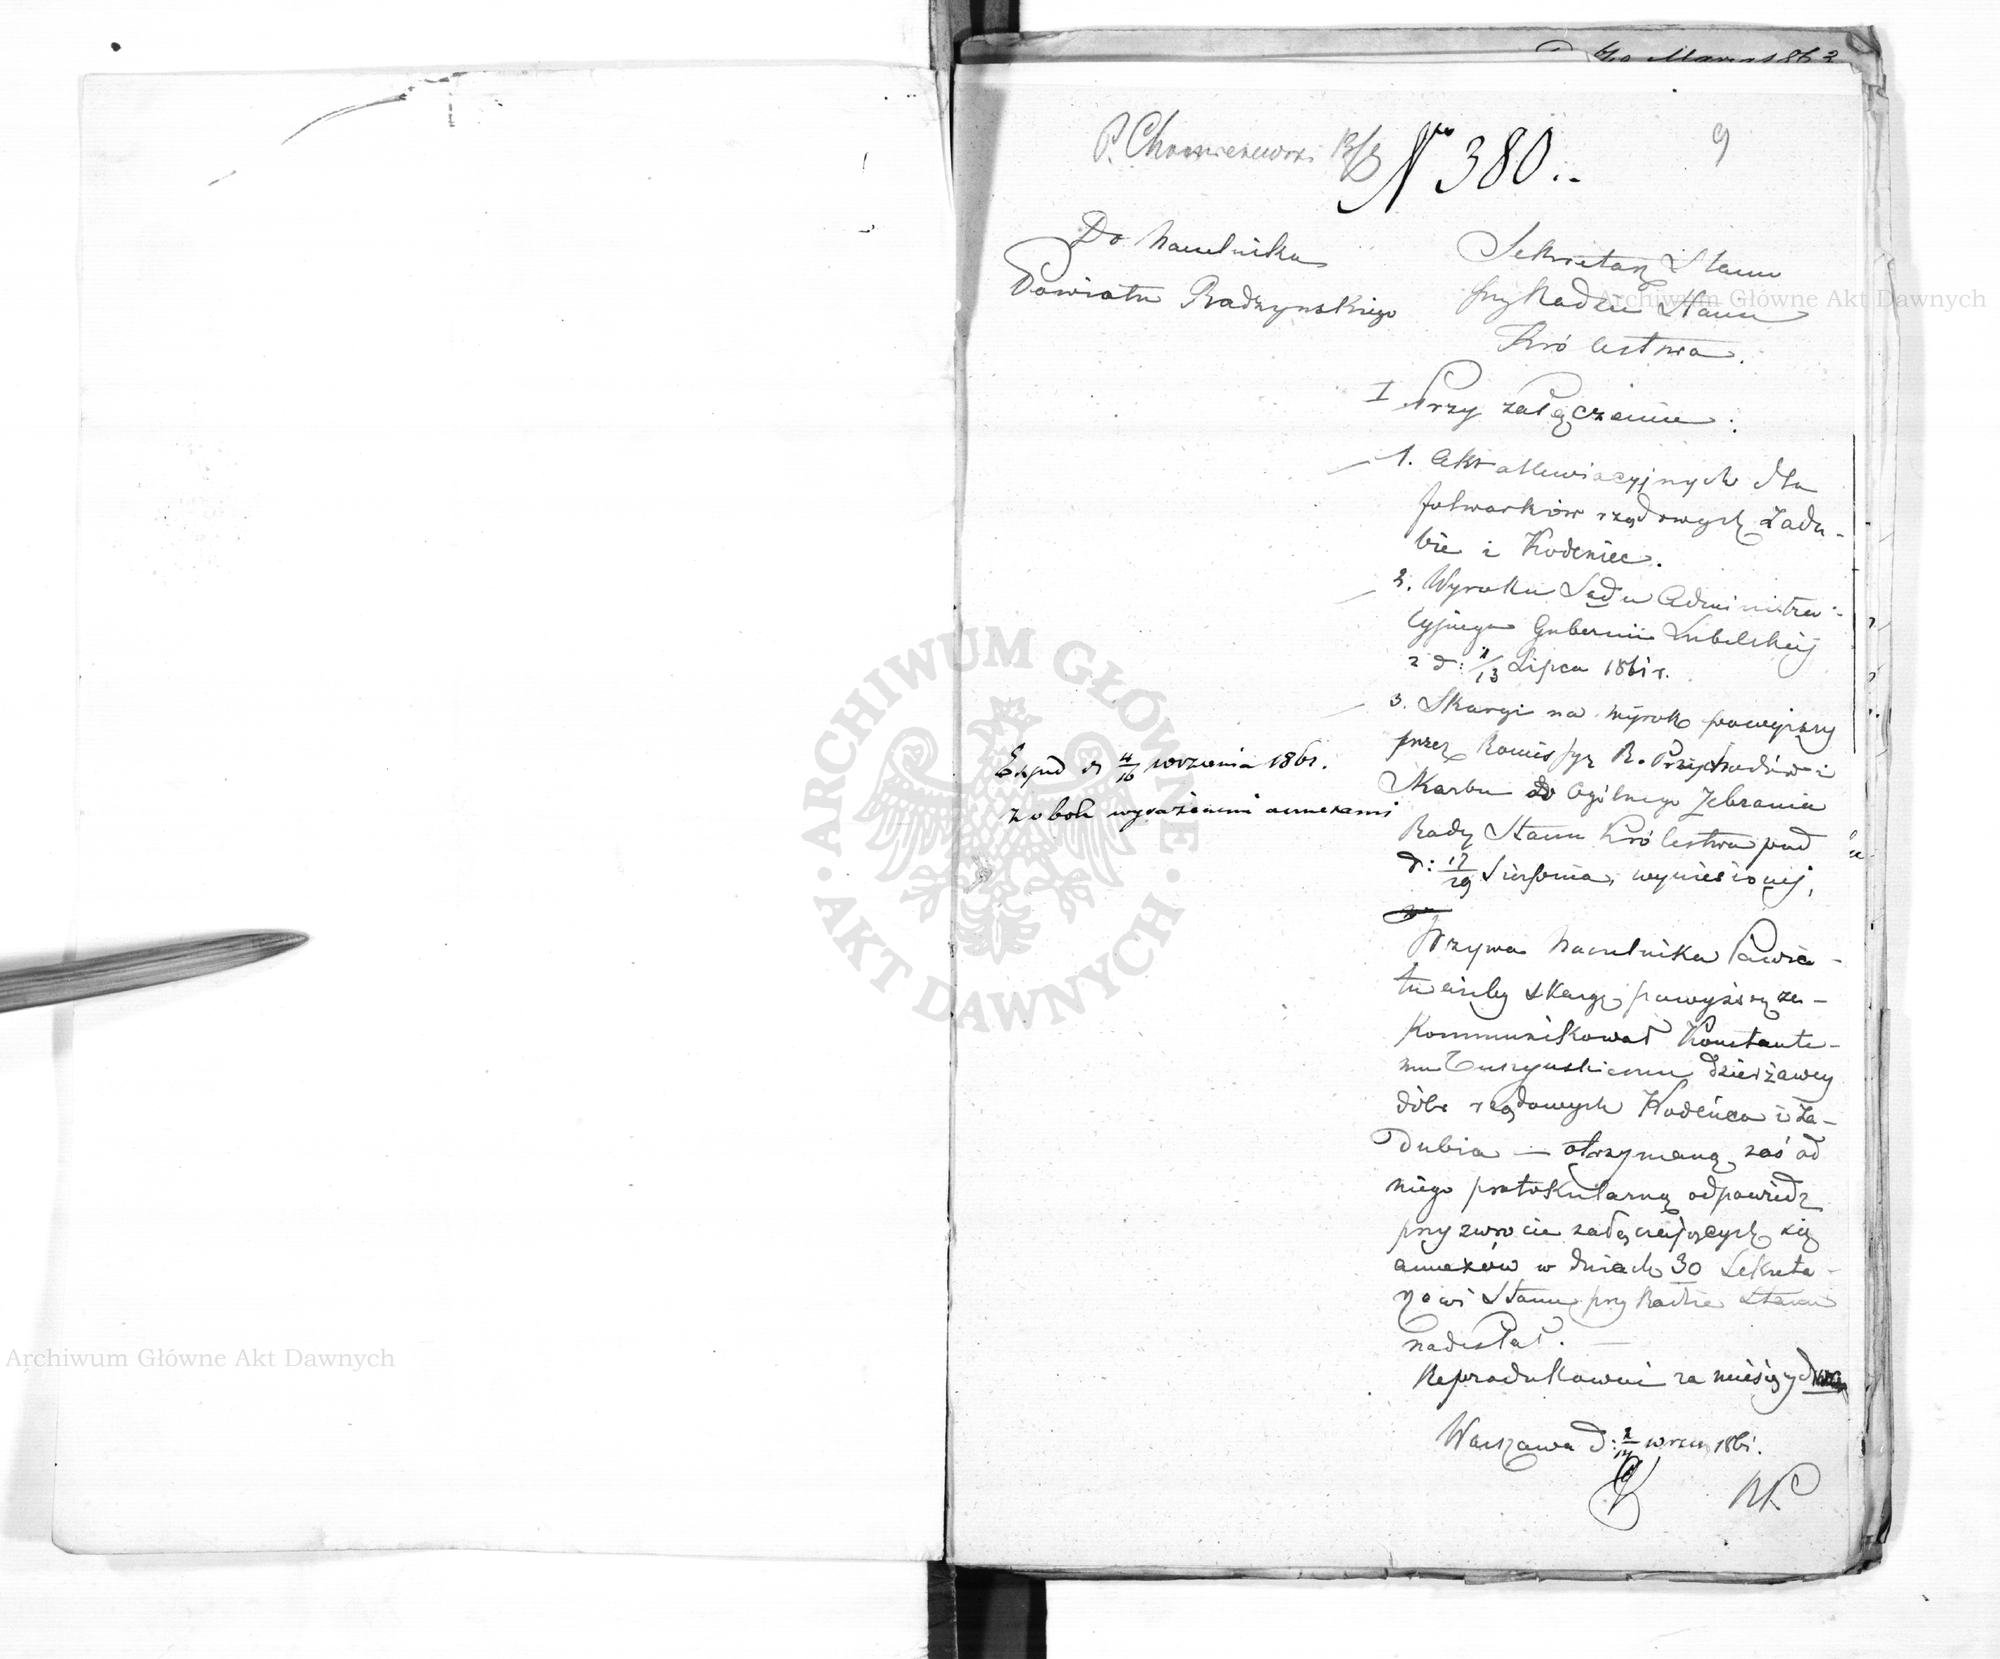 9
P. Chomiczewski
Nro 380.
Do Naczelnika
Powiatu Radzynskiego
Sekretarz Stanu
przy Radzie Stanu
Królestwa.
I Przy załączeniu:
1. Akt allewiacyjnych dla
folwarków rządowych Zadu-
bie i Kodeniec.
2. Wyroku Sądu Administra-
cyjnego Gubernii Lubelskiej
z d: 1/13 Lipca 1861 r.
3. Skargi na wyrok powyższy
przez Komissyę R. Przychodów i
Skarbu do Ogólnego Zebrania
Rady Stanu Królestwa pod
d: 17/29 Sierpnia, wyniesionej,
Wzywa Naczelnika Powia-
tu ażeby skargę powyższą za-
kommunikował Konstante-
mu Tuszyńskiemu dzierżawcy
dóbr rządowych Kodeńca i Za-
dubia — otrzymaną zaś od
niego protokularną odpowiedź
przy zwrocie załączających się
annexów w dniach 30 Sekreta-
rzowi Stanu przy Radzie Stanu
nadesłał. —
Reprodukować za miesięcy
Warszawa d: 2/14 wrześ 1861.
Exped d 4/16 września 1861.
z obok wyrażonemi annexami
Archiwum Główne Akt Dawnych
Archiwum Główne Akt Dawnych
ARCHIWUM GŁÓWNE
AKT DAWNYCH